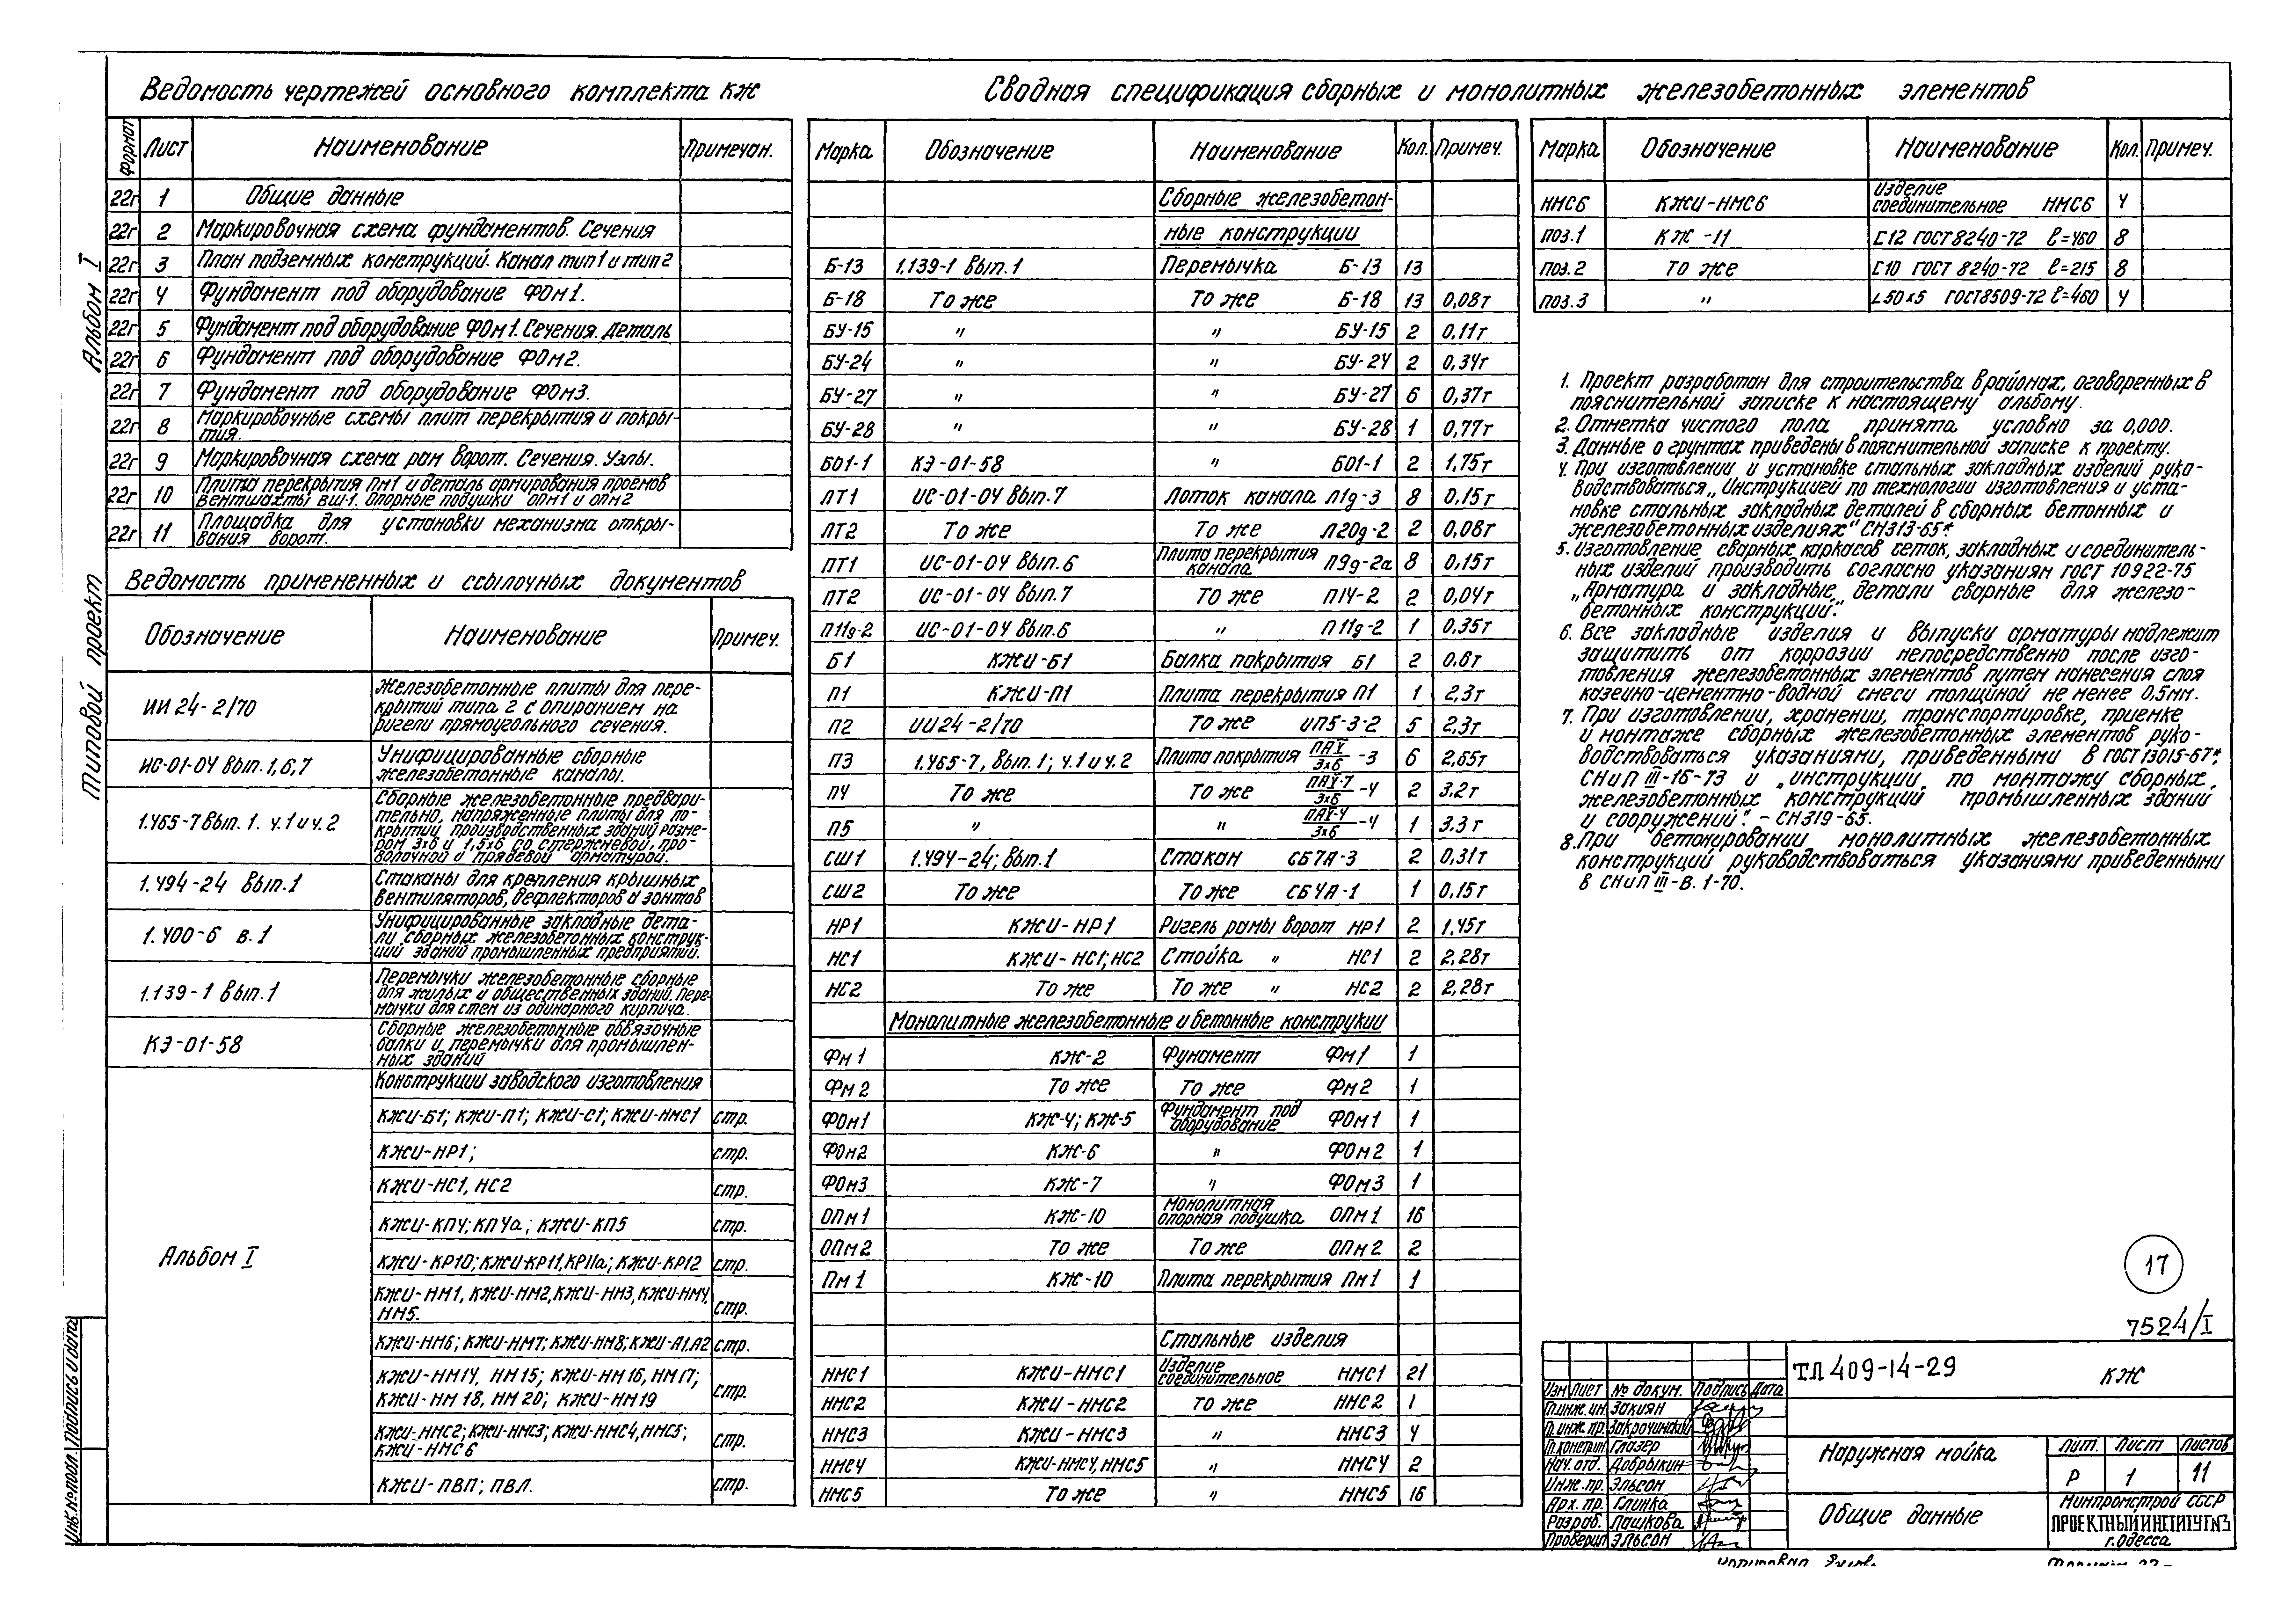 Ведомость чертежей основного комплекта КЖ
Формат Лист Наименование Примечан.
22г 1 Общие данные
22г 2 Маркировочная схема фундаментов. Сечения
22г 3 План подземных конструкций. Канал тип 1 и тип 2
22г 4 Фундамент под оборудование ФОм1.
22г 5 Фундамент под оборудование ФОм1. Сечения. Деталь
22г 6 Фундамент под оборудование ФОм2.
22г 7 Фундамент под оборудование ФОм3.
22г 8 Маркировочные схемы плит перекрытия и покры-
тия.
22г 9 Маркировочная схема рам ворот. Сечения. Узлы.
22г 10 Плита перекрытия Пм1 и деталь армирования проемов
вентшахты ВШ-1. Опорные подушки ОПм1 и ОПм2
22г 11 Площадка для установки механизма откры-
вания ворот.
Ведомость примененных и ссылочных документов
Обозначение Наименование Примеч.
ИИ 24-2/70 Железобетонные плиты для пере-
крытий типа 2 с опиранием на
ригели прямоугольного сечения.
ИС-01-04 Вып. 1,6,7 Унифицированные сборные
железобетонные каналы.
1.465-7 Вып. 1. ч.1 и ч.2 Сборные железобетонные предвари-
тельно, напряженные плиты для по-
крытий производственных зданий разме-
ром 3х6 и 1,5х6 со стержневой, про-
волочной и прядевой арматурой.
1.494-24 Вып.1 Стаканы для крепления крышных
вентиляторов, дефлекторов и зонтов
1.400-6 в.1 Унифицированные закладные дета-
ли сборных железобетонных конструк-
ций зданий промышленных предприятий.
1.139-1 Вып.1 Перемычки железобетонные сборные
для жилых и общественных зданий. Пере-
мычки для стен из одинарного кирпича.
КЭ-01-58 Сборные железобетонные обвязочные
балки и перемычки для промышлен-
ных зданий
Альбом I Конструкции заводского изготовления
КЖИ-Б1; КЖИ-П1; КЖИ-С1; КЖИ-НМС1 стр.
КЖИ-НР1; стр.
КЖИ-НС1, НС2 стр.
КЖИ-КП4; КП4а; КЖИ-КП5 стр.
КЖИ-КР10; КЖИ-КР11, КР11а; КЖИ-КР12 стр.
КЖИ-НМ1, КЖИ-НМ2, КЖИ-НМ3, КЖИ-НМ4,
НМ5. стр.
КЖИ-НМ6; КЖИ-НМ7; КЖИ-НМ8; КЖИ-А1, А2 стр.
КЖИ-НМ14, НМ15; КЖИ-НМ16, НМ17;
КЖИ-НМ18, НМ20; КЖИ-НМ19 стр.
КЖИ-НМС2; КЖИ-НМС3; КЖИ-НМС4, НМС5;
КЖИ-НМС6 стр.
КЖИ-ПВП; ПВЛ. стр.
Сводная спецификация сборных и монолитных железобетонных элементов
Марка Обозначение Наименование Кол. Примеч.
Сборные железобетон-
ные конструкции
Б-13 1.139-1 Вып.1 Перемычка Б-13 13
Б-18 То же То же Б-18 13 0,08т
БУ-15 " " БУ-15 2 0,11т
БУ-24 " " БУ-24 2 0,34т
БУ-27 " " БУ-27 6 0,37т
БУ-28 " " БУ-28 1 0,77т
БО1-1 КЭ-01-58 " БО1-1 2 1,75т
ЛТ1 ИС-01-04 Вып.7 Лоток канала Л1д-3 8 0,15т
ЛТ2 То же То же Л20д-2 2 0,08т
ПТ1 ИС-01-04 Вып.6 Плита перекрытия
канала П9д-2а 8 0,15т
ПТ2 ИС-01-04 Вып.7 То же П14-2 2 0,04т
П11д-2 ИС-01-04 Вып.6 " П11д-2 1 0.35т
Б1 КЖИ-Б1 Балка покрытия Б1 2 0.6т
П1 КЖИ-П1 Плита перекрытия П1 1 2,3т
П2 ИИ24-2/70 То же ИП5-3-2 5 2,3т
П3 1.465-7, Вып.1; ч.1 и ч.2 Плита покрытия ПАV/3х6 -3 6 2,65т
П4 То же То же ПАV-7/3х6 -4 2 3.2т
П5 " " ПАV-4/3х6 -4 1 3.3т
СШ1 1.494-24; Вып.1 Стакан СБ7А-3 2 0,31т
СШ2 То же То же СБ4А-1 1 0,15т
НР1 КЖИ-НР1 Ригель рамы ворот НР1 2 1,45т
НС1 КЖИ-НС1; НС2 Стойка " НС1 2 2,28т
НС2 То же То же " НС2 2 2,28т
Монолитные железобетонные и бетонные конструкции
Фм1 КЖ-2 Фунамент Фм1 1
Фм2 То же То же Фм2 1
ФОм1 КЖ-4; КЖ-5 Фундамент под
оборудование ФОм1 1
ФОм2 КЖ-6 " ФОм2 1
ФОм3 КЖ-7 " ФОм3 1
ОПм1 КЖ-10 Монолитная
опорная подушка ОПм1 16
ОПм2 То же То же ОПм2 2
Пм1 КЖ-10 Плита перекрытия Пм1 1
Стальные изделия
НМС1 КЖИ-НМС1 Изделие
соединительное НМС1 21
НМС2 КЖИ-НМС2 То же НМС2 1
НМС3 КЖИ-НМС3 " НМС3 4
НМС4 КЖИ-НМС4, НМС5 " НМС4 2
НМС5 То же " НМС5 16
Марка Обозначение Наименование Кол. Примеч.
НМС6 КЖИ-НМС6 Изделие
соединительное НМС6 4
поз.1 КЖ-11 [12 ГОСТ 8240-72 ℓ=460 8
поз.2 То же [10 ГОСТ 8240-72 ℓ=215 8
поз.3 " ∟50х5 ГОСТ 8509-72 ℓ=460 4
1. Проект разработан для строительства в районах, оговоренных в
пояснительной записке к настоящему альбому.
2. Отметка чистого пола принята условно за 0,000.
3. Данные о грунтах приведены в пояснительной записке к проекту.
4. При изготовлении и установке стальных закладных изделий руко-
водствоваться „Инструкцией по технологии изготовления и уста-
новке стальных закладных деталей в сборных бетонных и
железобетонных изделиях" СН313-65*
5. Изготовление сварных каркасов сеток, закладных и соединитель-
ных изделий производить согласно указаниям ГОСТ 10922-75
„Арматура и закладные детали сварные для железо-
бетонных конструкций".
6. Все закладные изделия и выпуски арматуры надлежит
защитить от коррозии непосредственно после изго-
товления железобетонных элементов путем нанесения слоя
казеино-цементно-водной смеси толщиной не менее 0,5мм.
7. При изготовлении, хранении, транспортировке, приемке
и монтаже сборных железобетонных элементов руко-
водствоваться указаниями, приведенными в ГОСТ 13015-67*,
СНиП III-16-73 и „инструкции, по монтажу сборных,
железобетонных конструкций промышленных зданий
и сооружений". - СН319-65.
8. При бетонировании монолитных железобетонных
конструкций руководствоваться указаниями приведенными
в СНиП III-В. 1-70.
17
7524/I
ТП 409-14-29 КЖ
Изм Лист № докум. Подпись Дата
Гл.инж.ин. Закиян
Гл.инж.пр. Закрочинский
Гл.констр.ин. Глазер
Нач. отд. Добрыкин
Инж. пр. Эльсон
Арх. пр. Глинка
Разраб. Лашкова
Проверил Эльсон
Наружная мойка
Лит. Лист Листов
Р 1 11
Общие данные
Минпромстрой СССР
ПРОЕКТНЫЙ ИНСТИТУТ №3
г. Одесса
Альбом I
Типовой проект
Инв.№подл. Подпись и дата